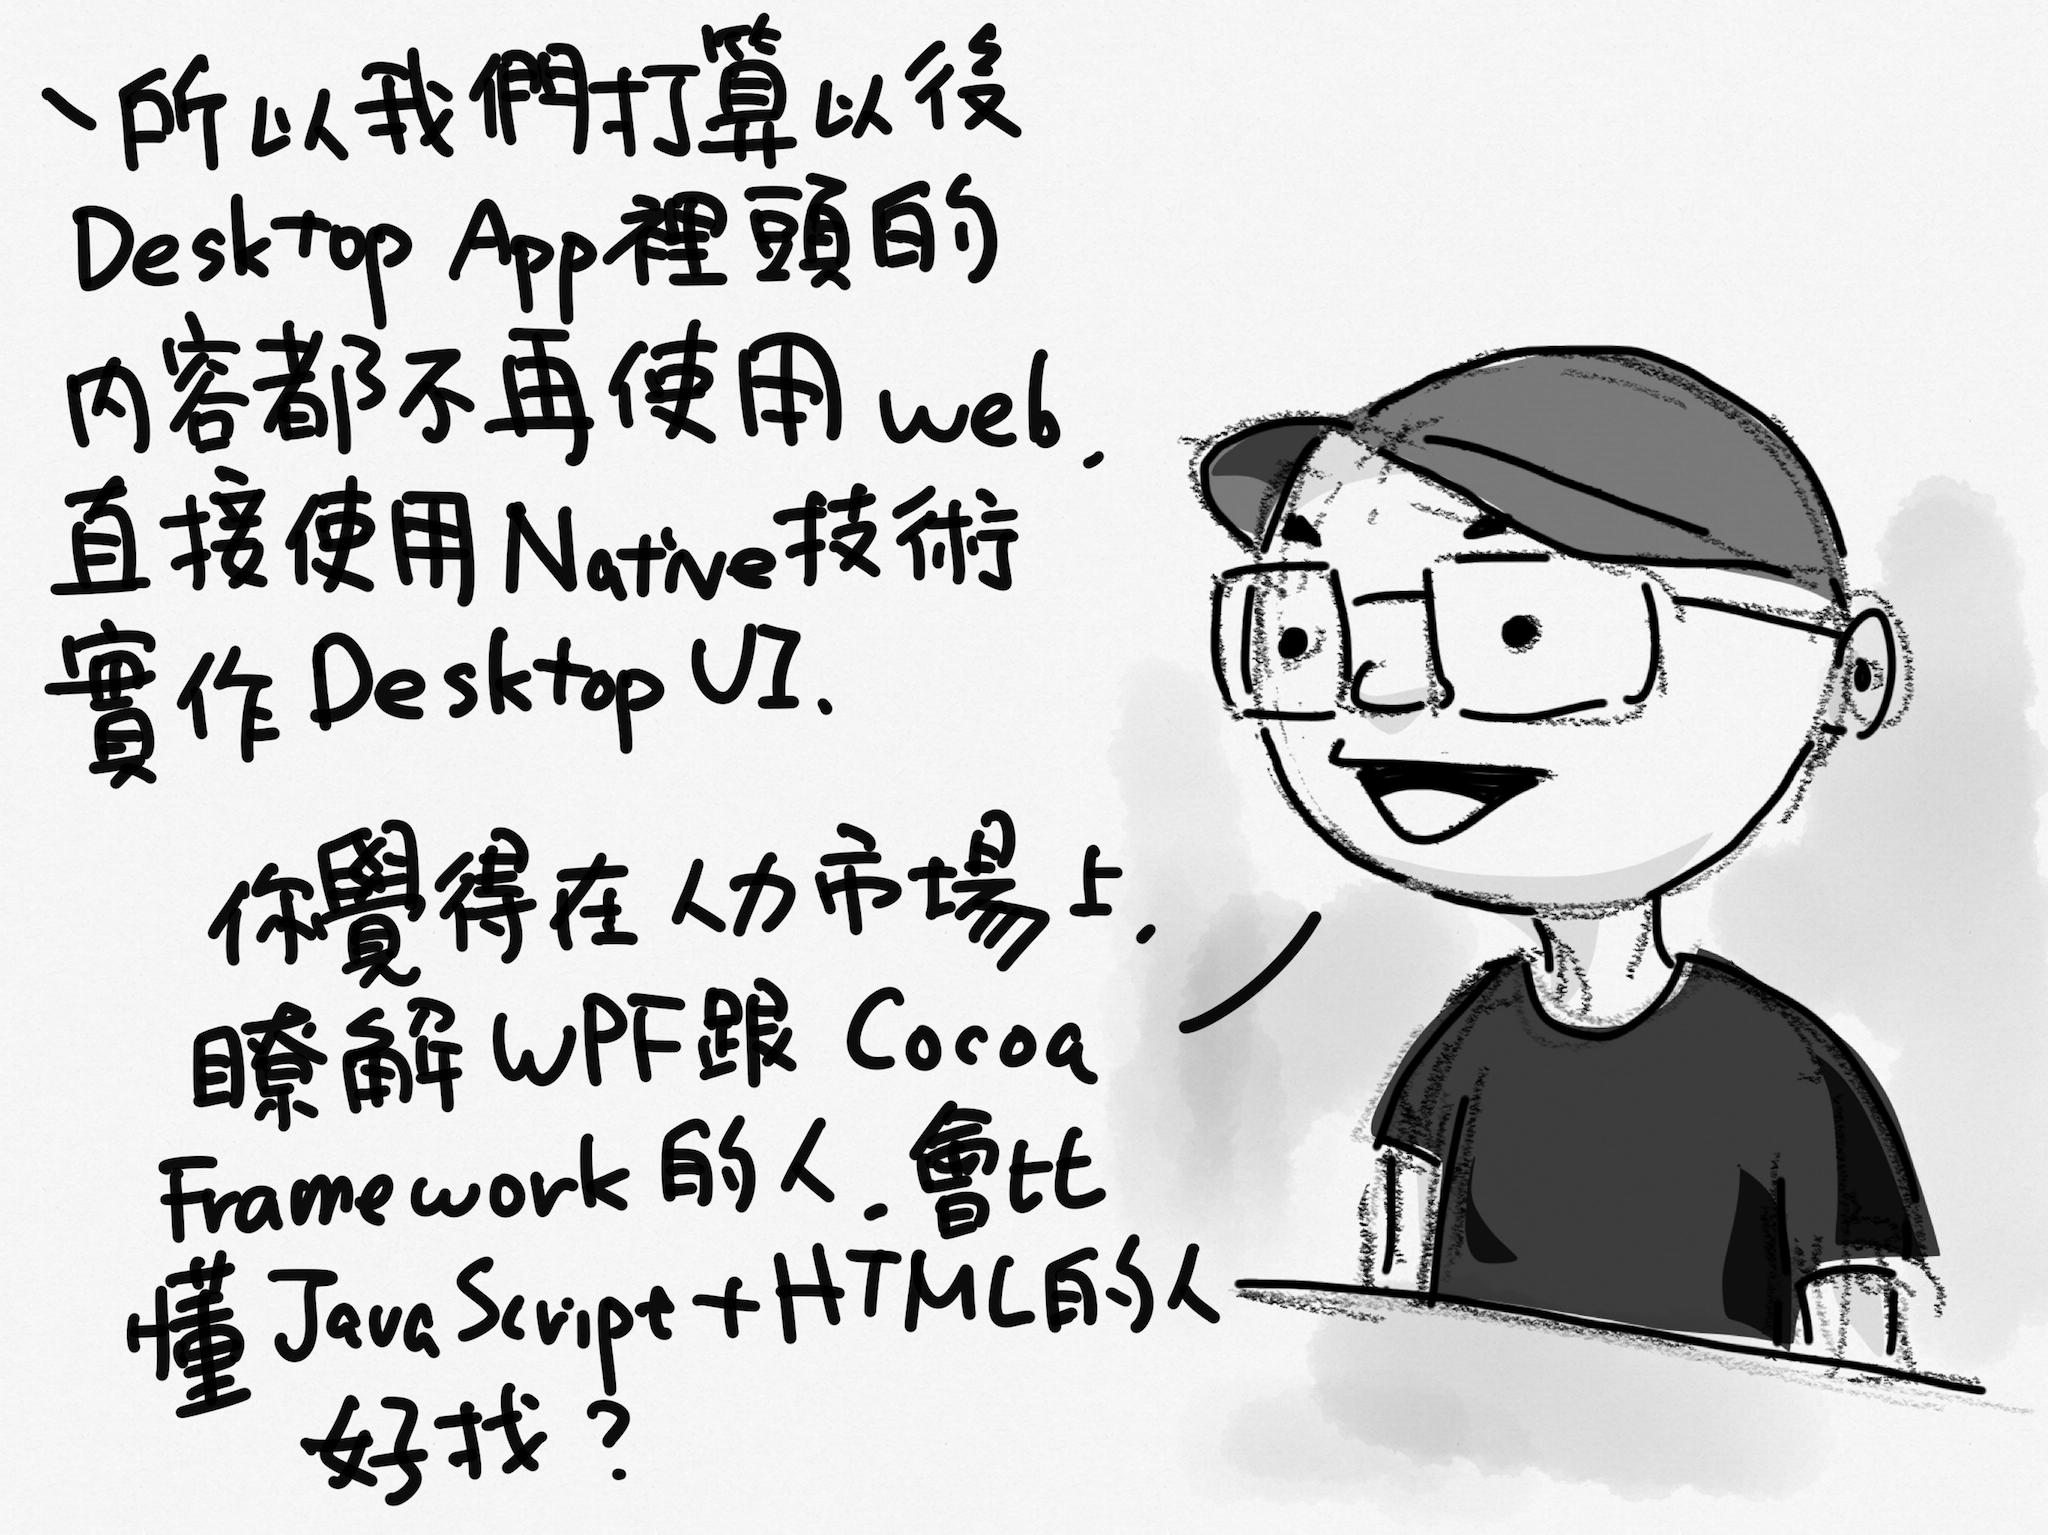 所以我們打算以後
Desktop App裡頭的
內容都不再使用web,
直接使用Native技術
實作Desktop UI.
你覺得在人力市場上,
瞭解WPF跟Cocoa
Framework的人,會比
懂JavaScript+HTML的人
好找?